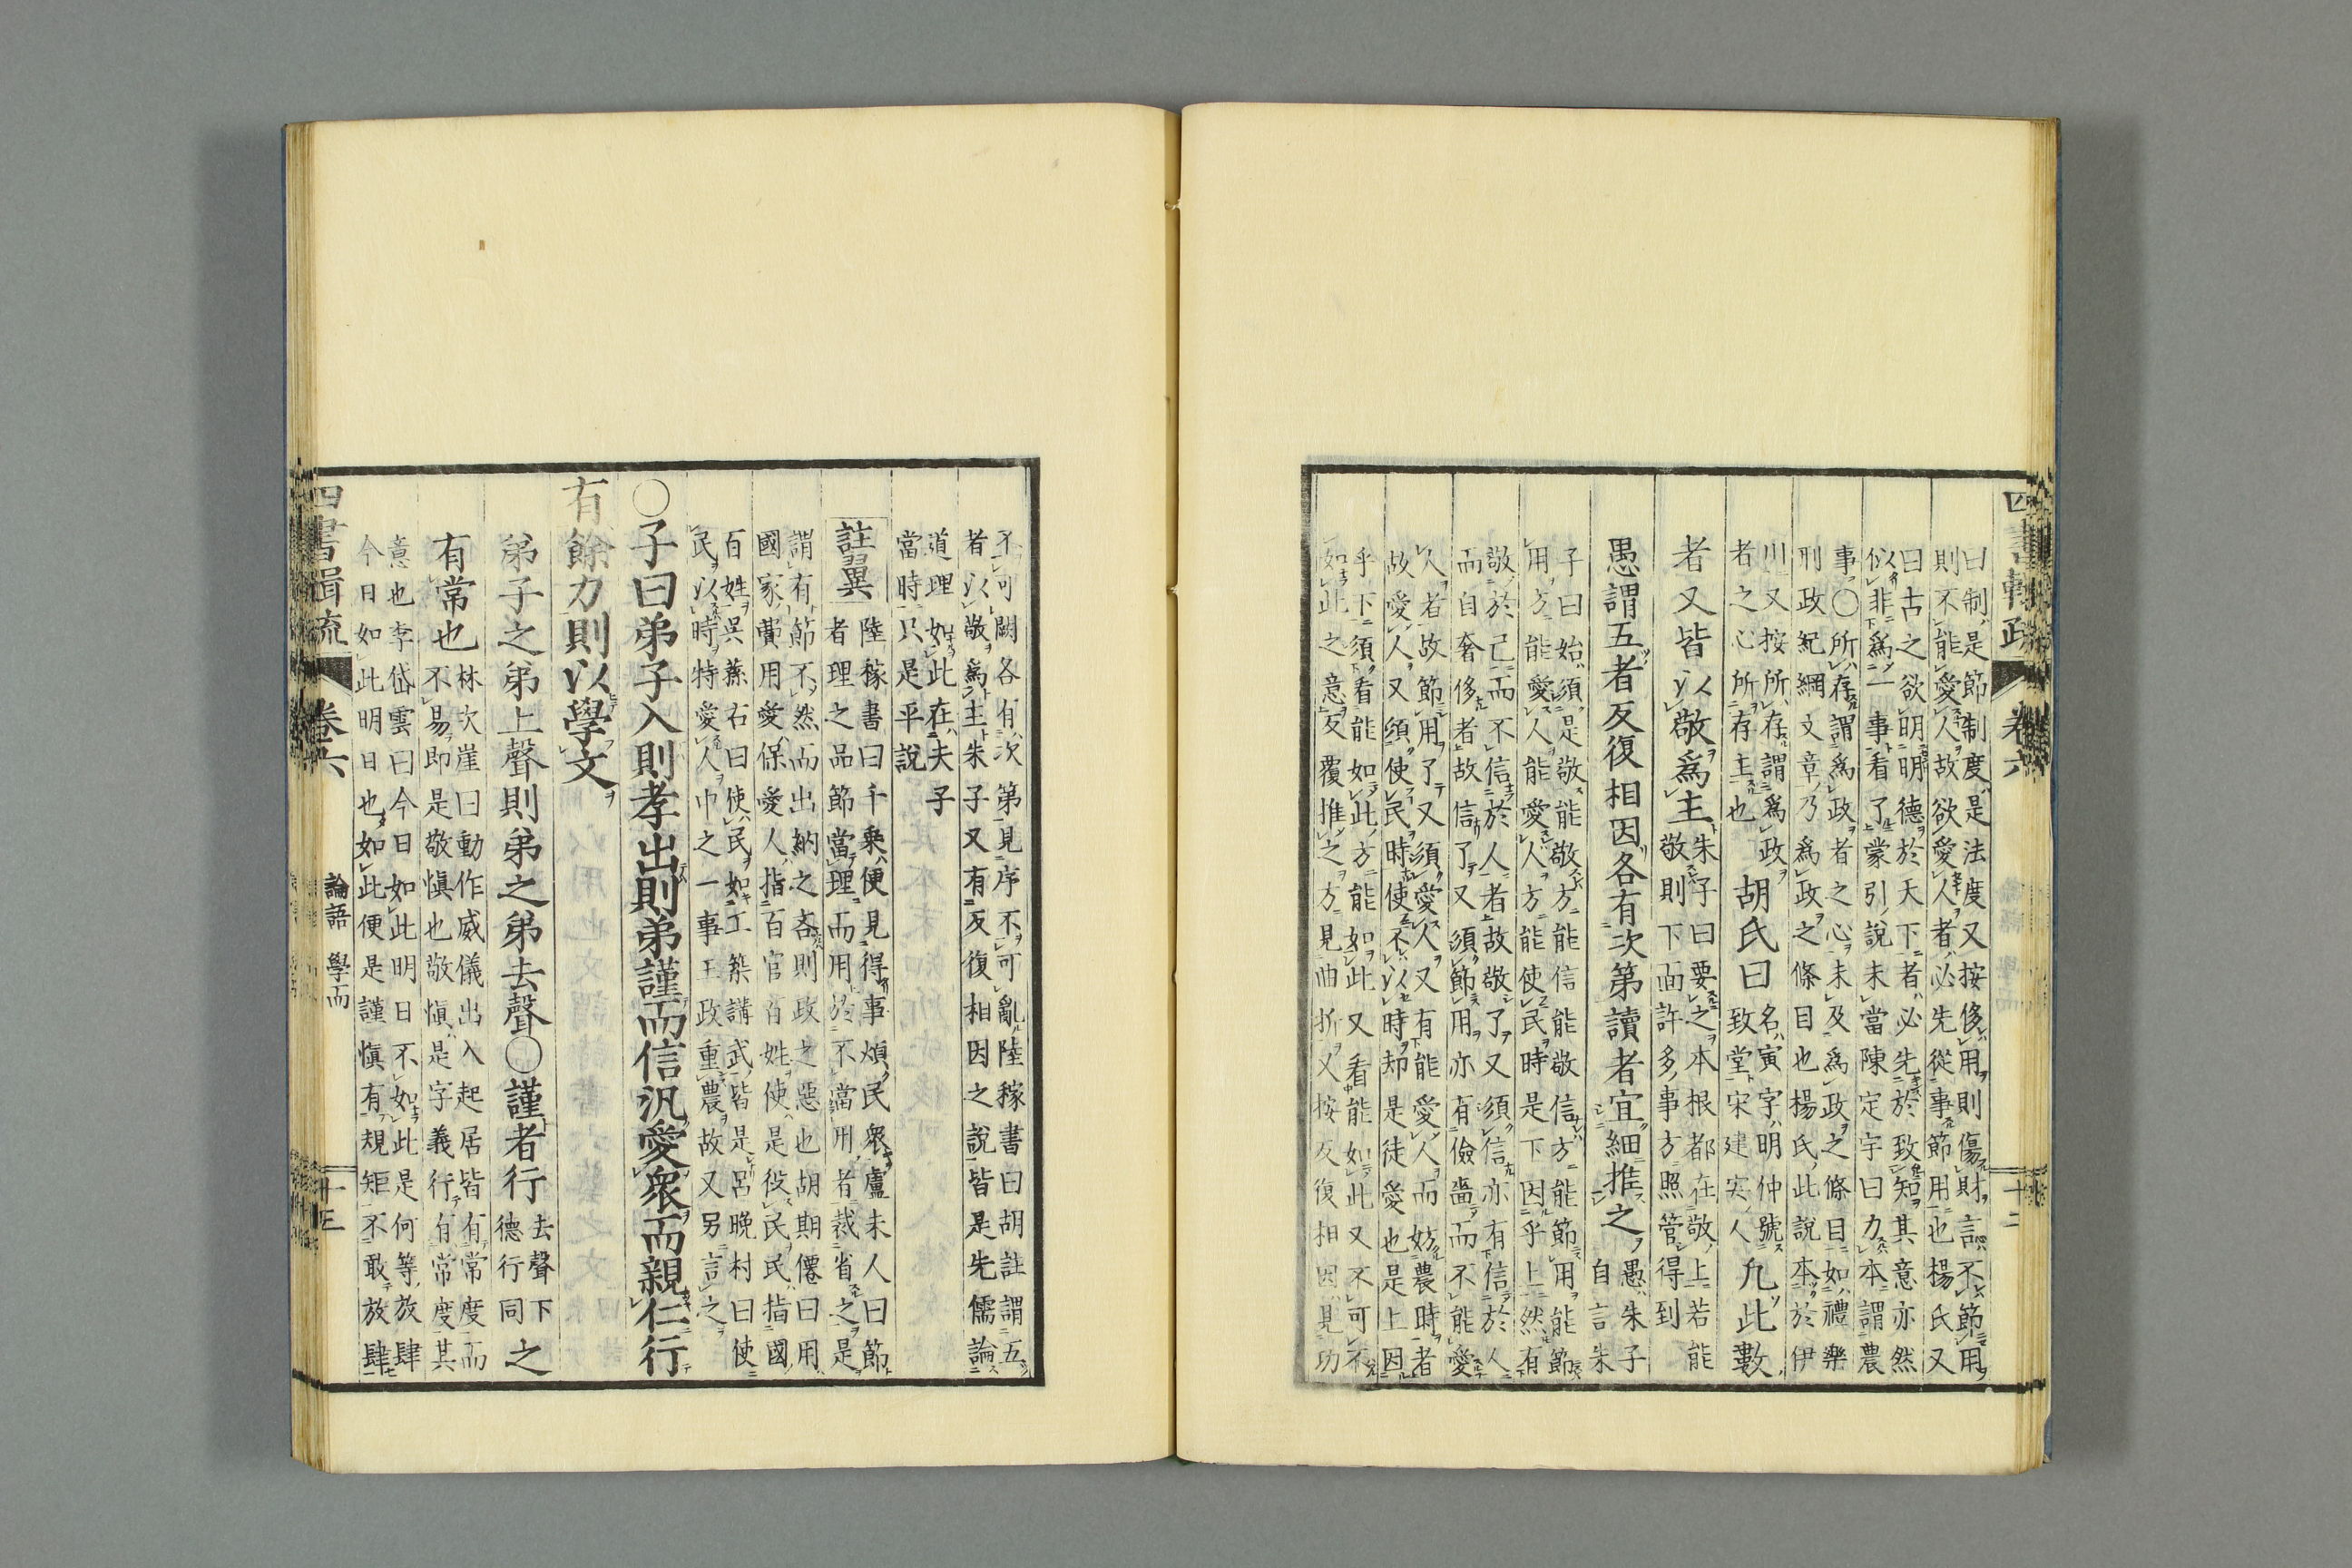 四書輯疏 卷六 十二
曰制是節制度是法度又按侈用則傷財言不節用
則不能愛人故欲愛人者必先從事節用也楊氏又
曰古之欲明明德於天下者必先於致知其意亦然
似非爲一事看了蒙引說未當陳定宇曰力本謂農
事〇所存謂爲政者之心未及爲政之條目如禮樂
刑政紀綱文章乃爲政之條目也楊氏此說本於伊
川又按所存謂爲政
者之心所存主也
胡氏曰
名寅字明仲號
致堂宋建安人
凡此數
者又皆以敬爲主
朱子曰要之本根都在敬上若能
敬則下面許多事方照管得到
愚謂五者反復相因各有次第讀者宜細推之
愚朱子
自言朱
子曰始須是敬能敬方能信能敬信方能節用能節
用方能愛人能愛人方能使民時是下因乎上然有
敬於己而不信於人者故敬了又須信亦有信於人
而自奢侈者故信了又須節用亦有儉嗇而不能愛
人者故節用了又須愛人又有能愛人而妨農時者
故愛人又須使民時使不以時却是徒愛也是上因
乎下須看能如此方能如此又看能如此又不可不
如此之意反覆推之方見曲折又按反復相因見功
不可闕各有次第見序不可亂陸稼書曰胡註謂五
者以敬爲主朱子又有反復相因之說皆是先儒論
道理如此在夫子
當時只是平說
註翼
陸稼書曰千乘便見得事煩民衆盧未人曰節
者理之品節當理而用於不當用者裁省之是
謂有節不然而出納之吝則政之惡也胡期僊曰用
國家費用愛保愛人指百官百姓使是役民民指國
百姓吳蓀石曰使民如工築講武皆是呂晚村曰使
民以時特愛人中之一事王政重農故又另言之
〇子曰弟子入則孝出則弟謹而信汎愛衆而親仁行
有餘力則以學文
弟子之弟上聲則弟之弟去聲〇謹者行
去聲下
德行同
之
有常也
林次崖曰動作威儀出入起居皆有常度而
不易即是敬愼也敬愼是字義行有常度其
意也李岱雲曰今日如此明日不如此是何等放肆
今日如此明日也如此便是謹愼有規矩不敢放肆
四書輯疏 卷六 論語 學而 十三